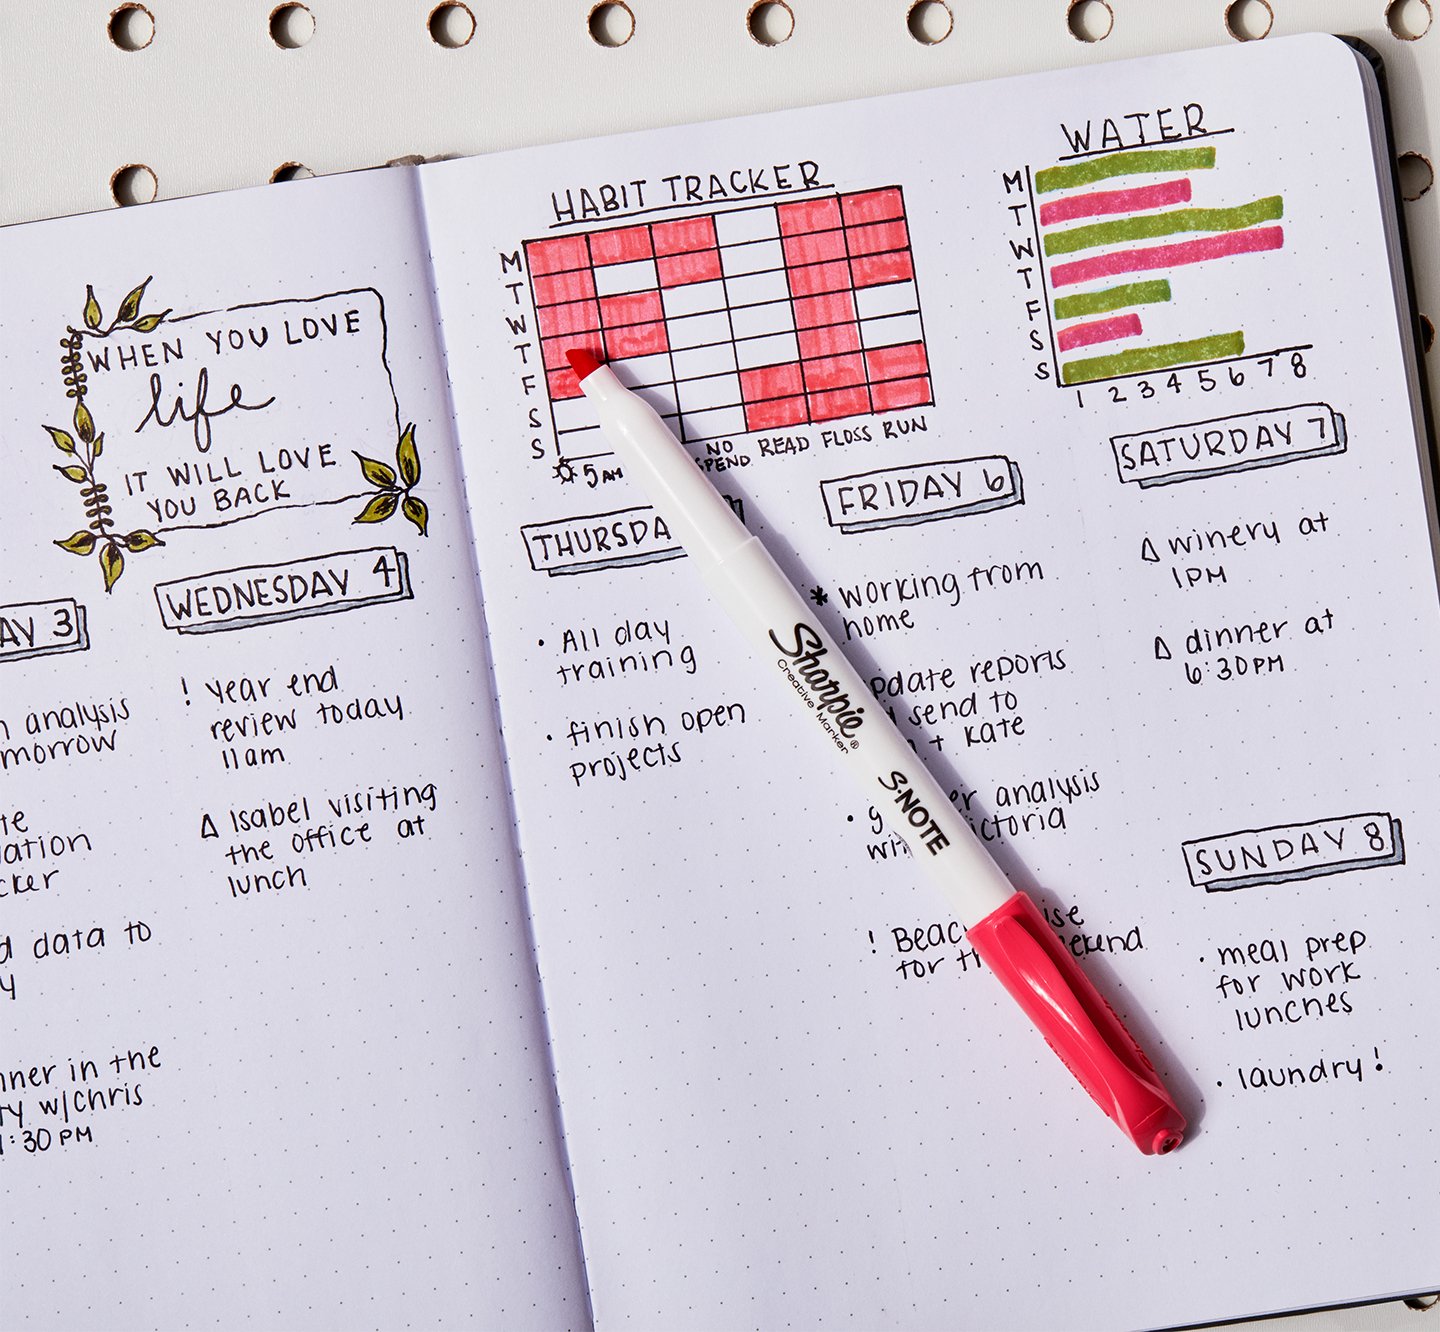 WHEN YOU LOVE
life
IT WILL LOVE
YOU BACK
3
analysis
ation
data to
in the
w/chris
:30 PM
WEDNESDAY 4
! year end
review today
11am
Δ Isabel visiting
the office at
lunch
HABIT TRACKER
M
T
W
T
F
S
S
5 AM
NO
SPEND
READ
FLOSS
RUN
WATER
M
T
W
T
F
S
S
1 2 3 4 5 6 7 8
THURSDA
• All day
training
• finish open
projects
FRIDAY 6
* working from
home
pdate reports
send to
+ Kate
analysis
! Beac
for
SATURDAY 7
Δ winery at
1PM
Δ dinner at
6:30PM
SUNDAY 8
• meal prep
for work
lunches
• laundry!
Sharpie®
Creative Marker
S·NOTE